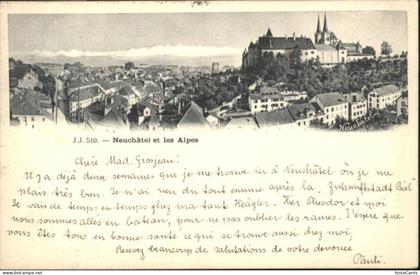 J.J. 510. — Neuchâtel et les Alpes
Neuchâtel
Chère Mad. Grosjean!
Il y a déjà deux semaines que je me trouve ici à Neuchâtel où je me
plais très bien. Je n'ai rien du tout ennuie après la „Zukunftstadt Biel"
Je vais de temps en temps chez ma tante Hägler. Herr Theodor et moi
nous sommes allés en bateau, pour ne pas oublier les rames. J'espère que
vous êtes tous en bonne santé ce qui se trouve aussi chez moi.
Recevez beaucoup de salutations de votre devouée
Pauli.